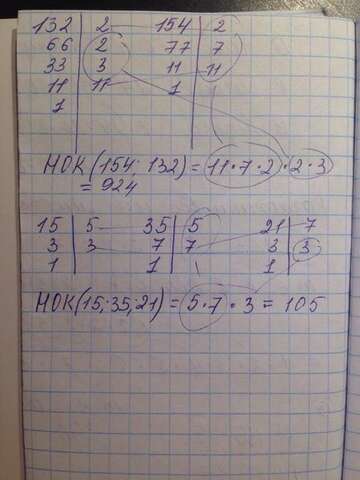 132 | 2 154 | 2
66 | 2 77 | 7
33 | 3 11 | 11
11 | 11 1
1
НОК(154; 132) = 11·7·2·2·3
= 924
15 | 5 35 | 5 21 | 7
3 | 3 7 | 7 3 | 3
1 1 1
НОК(15;35;21) = 5·7·3 = 105